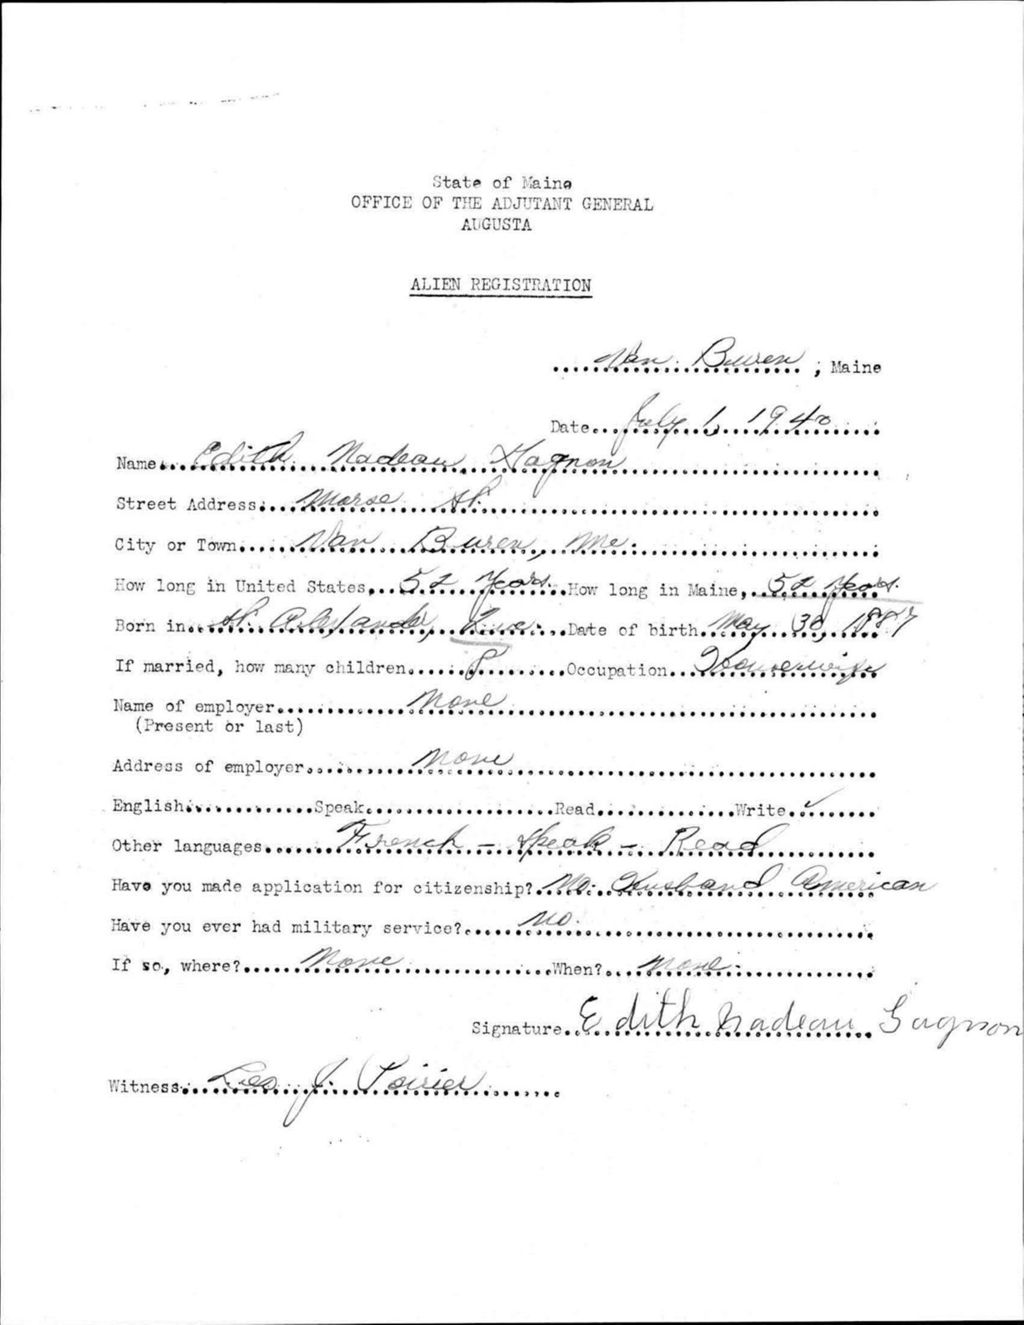 State of Maine
OFFICE OF THE ADJUTANT GENERAL
AUGUSTA
ALIEN REGISTRATION
Van Buren, Maine
Date July 1, 1940
Name Edith Nadeau Gagnon
Street Address Morse St.
City or Town Van Buren, Me.
How long in United States 52 years How long in Maine, 52 years.
Born in St. Alexandre, Que. Date of birth May 30, 1887
If married, how many children 8 Occupation Housewife
Name of employer None
(Present or last)
Address of employer None
English Speak Read Write ✓
Other languages French - Speak - Read
Have you made application for citizenship? No. Husband American
Have you ever had military service? No.
If so, where? None When? None.
Signature Edith Nadeau Gagnon
Witness Leo J. Poirier